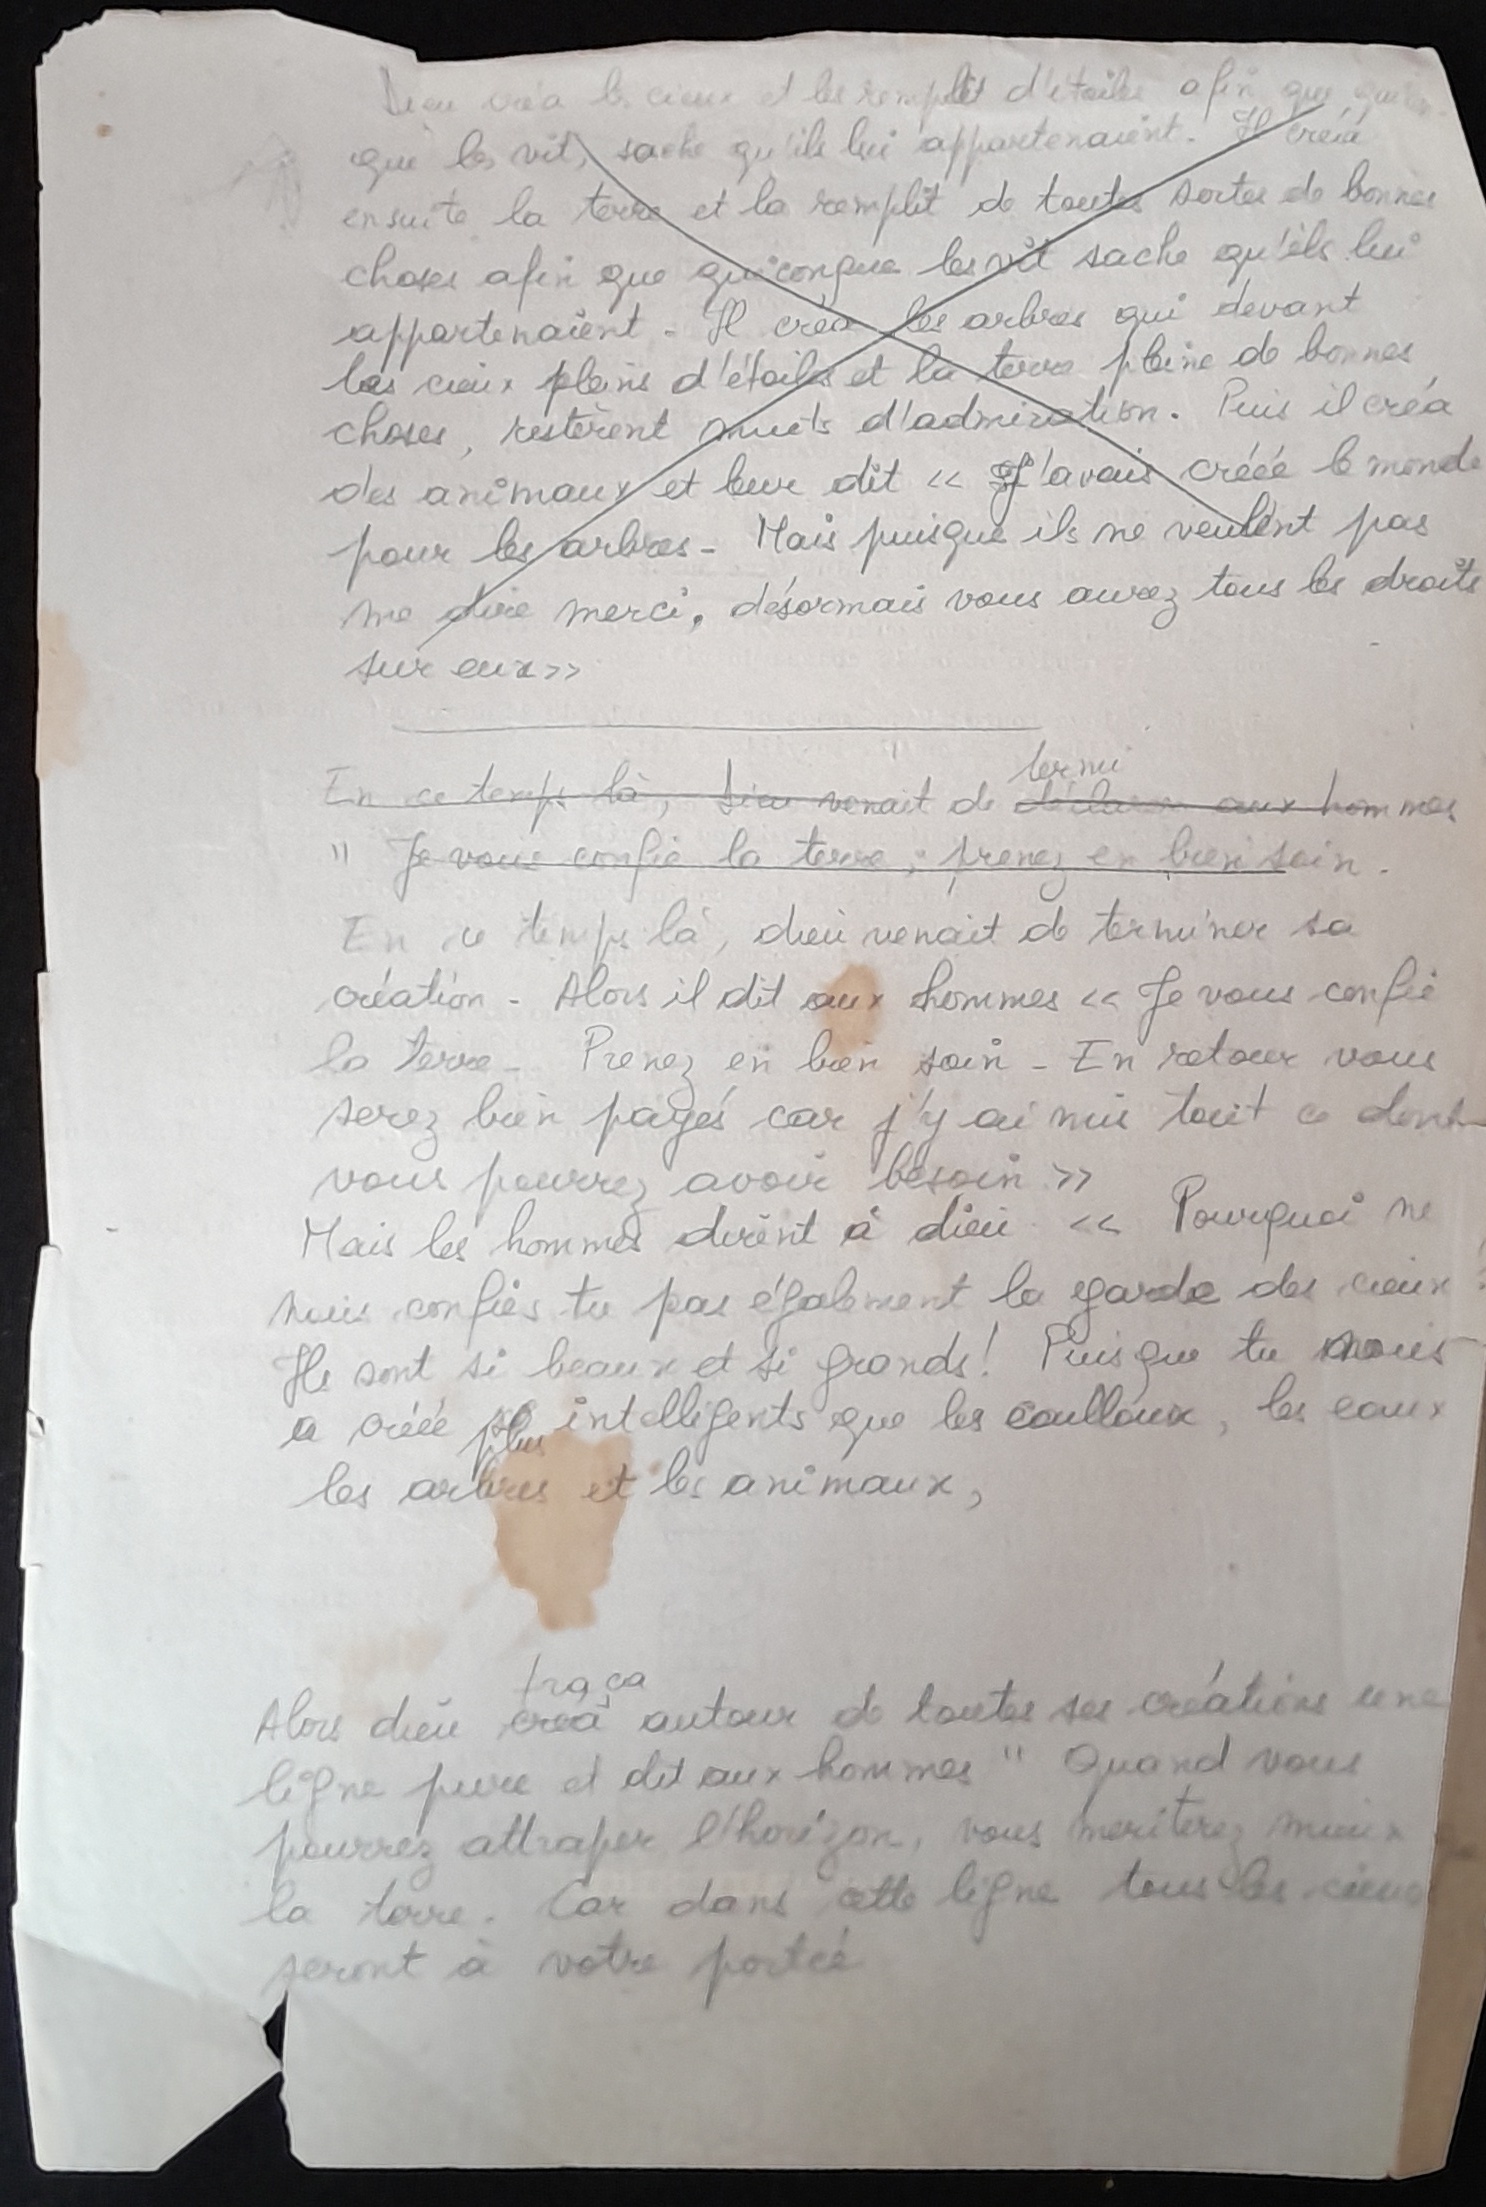 Dieu créa les cieux et les remplit d'étoiles afin que quicon-
que les vit, sache qu'ils lui appartenaient. Il créa
ensuite la terre et la remplit de toutes sortes de bonnes
choses afin que quiconque les vit sache qu'ils lui
appartenaient - Il créa les arbres qui devant
les cieux pleins d'étoiles et la terre pleine de bonnes
choses, restèrent muets d'admiration. Puis il créa
des animaux et leur dit << J'avais créée le monde
pour les arbres - Mais puisque ils ne veulent pas
me dire merci, désormais vous aurez tous les droits
sur eux >>
termi
En ce temps là, dieu venait de déclarer aux hommes
" Je vous confie la terre ; prenez en bien soin.
En ce temps là, dieu venait de terminer sa
création - Alors il dit aux hommes << Je vous confie
la terre - Prenez en bien soin - En retour vous
serez bien payés car j'y ai mis tout ce dont
vous pourrez avoir besoin >>
Mais les hommes dirent à dieu << Pourquoi ne
nous confies tu pas également la garde des cieux ?
Ils sont si beaux et si grands ! Puisque tu nous
a créée plus intelligents que les cailloux, les eaux
les arbres et les animaux,
traça
Alors dieu créa autour de toutes ses créations une
ligne pure et dit aux hommes " Quand vous
pourrez attraper l'horizon, vous meriterez mieux que
la terre. Car dans cette ligne tous les cieux
seront à votre portée